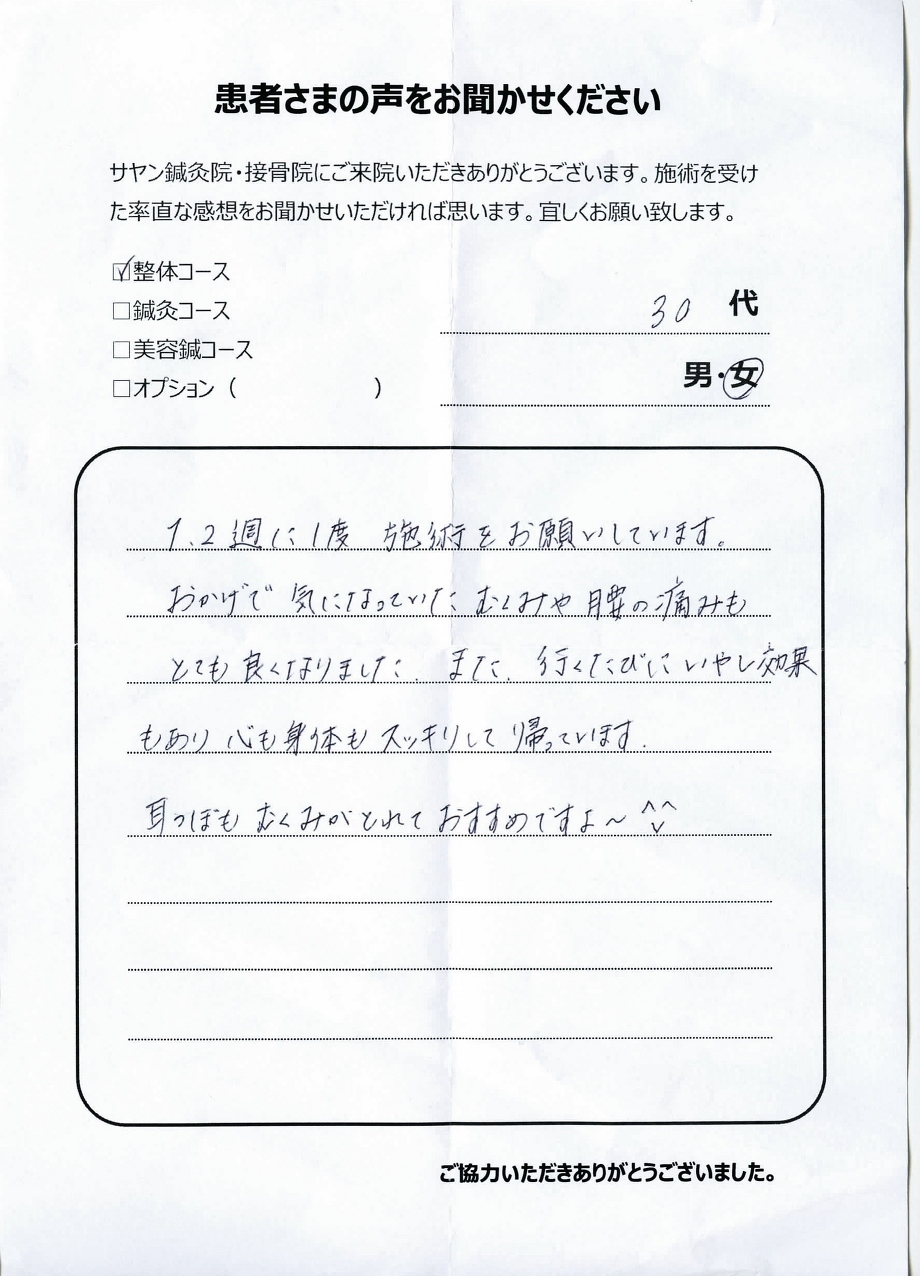 患者さまの声をお聞かせください
サヤン鍼灸院・接骨院にご来院いただきありがとうございます。施術を受け
た率直な感想をお聞かせいただければ思います。宜しくお願い致します。
☑整体コース
□鍼灸コース
□美容鍼コース
□オプション（　　　　　　）
30 代
男・女
1、2週に1度 施術をお願いしています。
おかげで 気になっていた むくみや 腰の痛みも
とても良くなりました。また、行くたびに いやし効果
もあり 心も身体も スッキリして 帰っています。
耳つぼも むくみがとれて おすすめですよ～ ^v^
ご協力いただきありがとうございました。